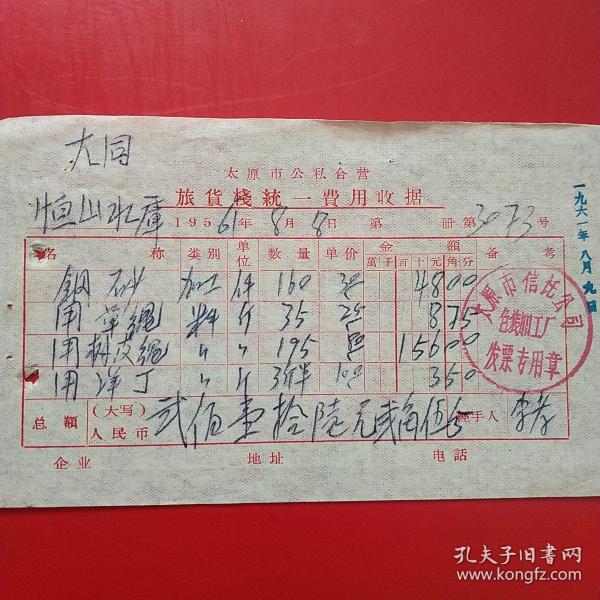 大同
太原市公私合营
恒山水庫 旅貨棧統一費用收据
195 61年8月8日 第 册第3073号
名称 类别 单位 数量 单价 金額 備考
萬千百十元角分
鋼砂 加工 件 160 30 4800
用草繩 料 斤 35 25 875
用树皮繩 〃 〃 195 15600
用洋丁 〃 斤 100 350
总額 (大写) 人民币 弍佰壹拾陸元弍角伍分 經手人 李孝
企业 地址 电話
太原市信托公司
包装加工厂
发票专用章
一九六一年八月九日
孔夫子旧书网
www.kongfz.com